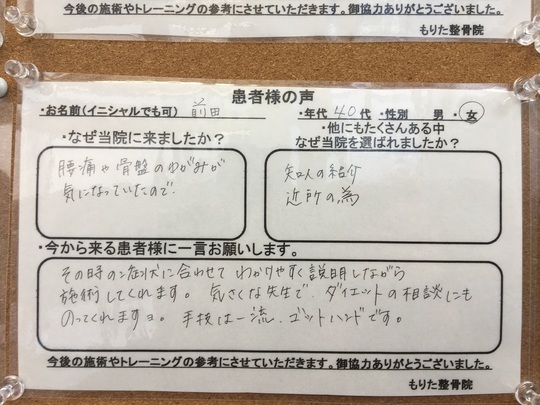 今後の施術やトレーニングの参考にさせていただきます。御協力ありがとうございました。
もりた整骨院
患者様の声
・お名前(イニシャルでも可) 前田 ・年代 40 代 ・性別 男 ・ 女
・なぜ当院に来ましたか?
腰痛や骨盤のゆがみが
気になっていたので。
・他にもたくさんある中
なぜ当院を選ばれましたか?
知人の紹介
近所の為
・今から来る患者様に一言お願いします。
その時の症状に合わせて わかりやすく説明しながら
施術してくれます。 気さくな先生で、ダイエットの相談にも
のってくれますヨ。 手技は一流、ゴットハンドです。
今後の施術やトレーニングの参考にさせていただきます。御協力ありがとうございました。
もりた整骨院